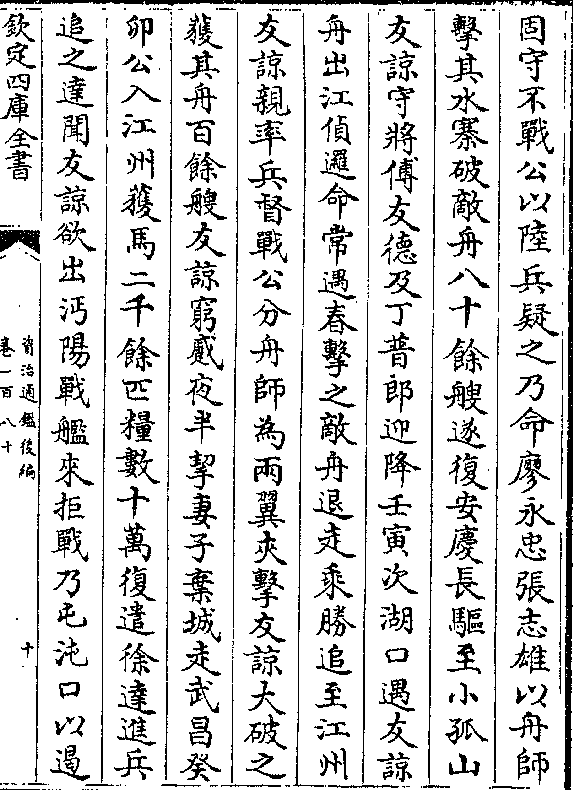 固守不戰公以陸兵疑之乃命廖永忠張志雄以舟師
擊其水寨破敵舟八十餘艘遂復安慶長驅至小孤山
友諒守將傅友德及丁普郎迎降壬寅次湖口遇友諒
舟出江偵邏命常遇春擊之敵舟退走乘勝追至江州
友諒親率兵督戰公分舟師為兩翼夾擊友諒大破之
獲其舟百餘艘友諒窮蹙夜半挈妻子棄城走武昌癸
卯公入江州獲馬二千餘匹糧數十萬復遣徐達進兵
追之達聞友諒欲出沔陽戰艦來拒戰乃屯沌口以遏
欽定四庫全書
資治通鑑後編
卷一百八十
十